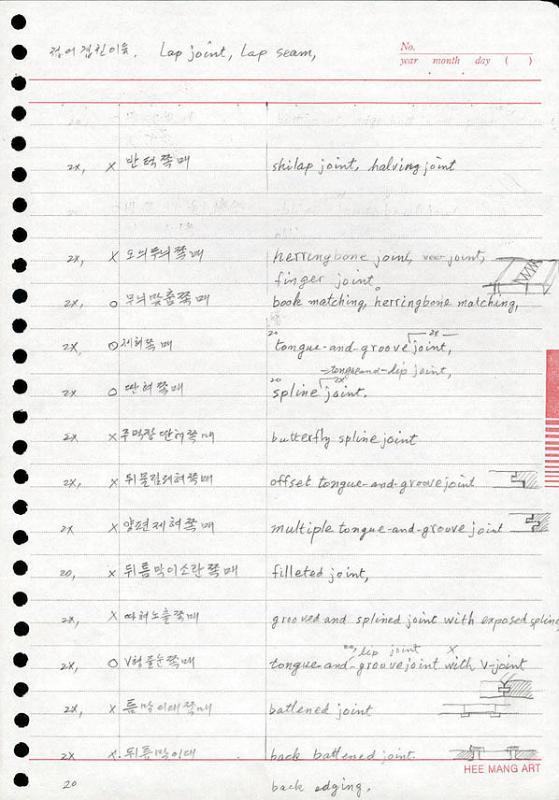 접어겹친이음. Lap joint, Lap seam,
No.
year month day ( )
2x, x 반턱쪽매 shilap joint, halving joint
2x, x 오늬무늬쪽매 herringbone joint, vee-joint,
finger joint.
2x, o 무늬맞춤쪽매 book matching, herringbone matching,
20 2x
2x, o 제혀쪽매 tongue-and-groove joint,
tongue-and-lip joint,
20 2x
2x o 딴혀쪽매 spline joint.
2x x 주먹장딴혀쪽매 butterfly spline joint
2x, x 뒤물림제혀쪽매 offset tongue-and-groove joint
2x x 양편제혀쪽매 multiple tongue-and-groove joint
20, x 뒤틈막이소란쪽매 filleted joint,
2x, x 딴혀노출쪽매 grooved and splined joint with exposed spline
lip joint x
2x, o V형줄눈쪽매 tongue-and-groove joint with V-joint
2x, x 틈막이대쪽매 battened joint
2x x. 뒤틈막이대 back battened joint.
HEE MANG ART
20 back edging,